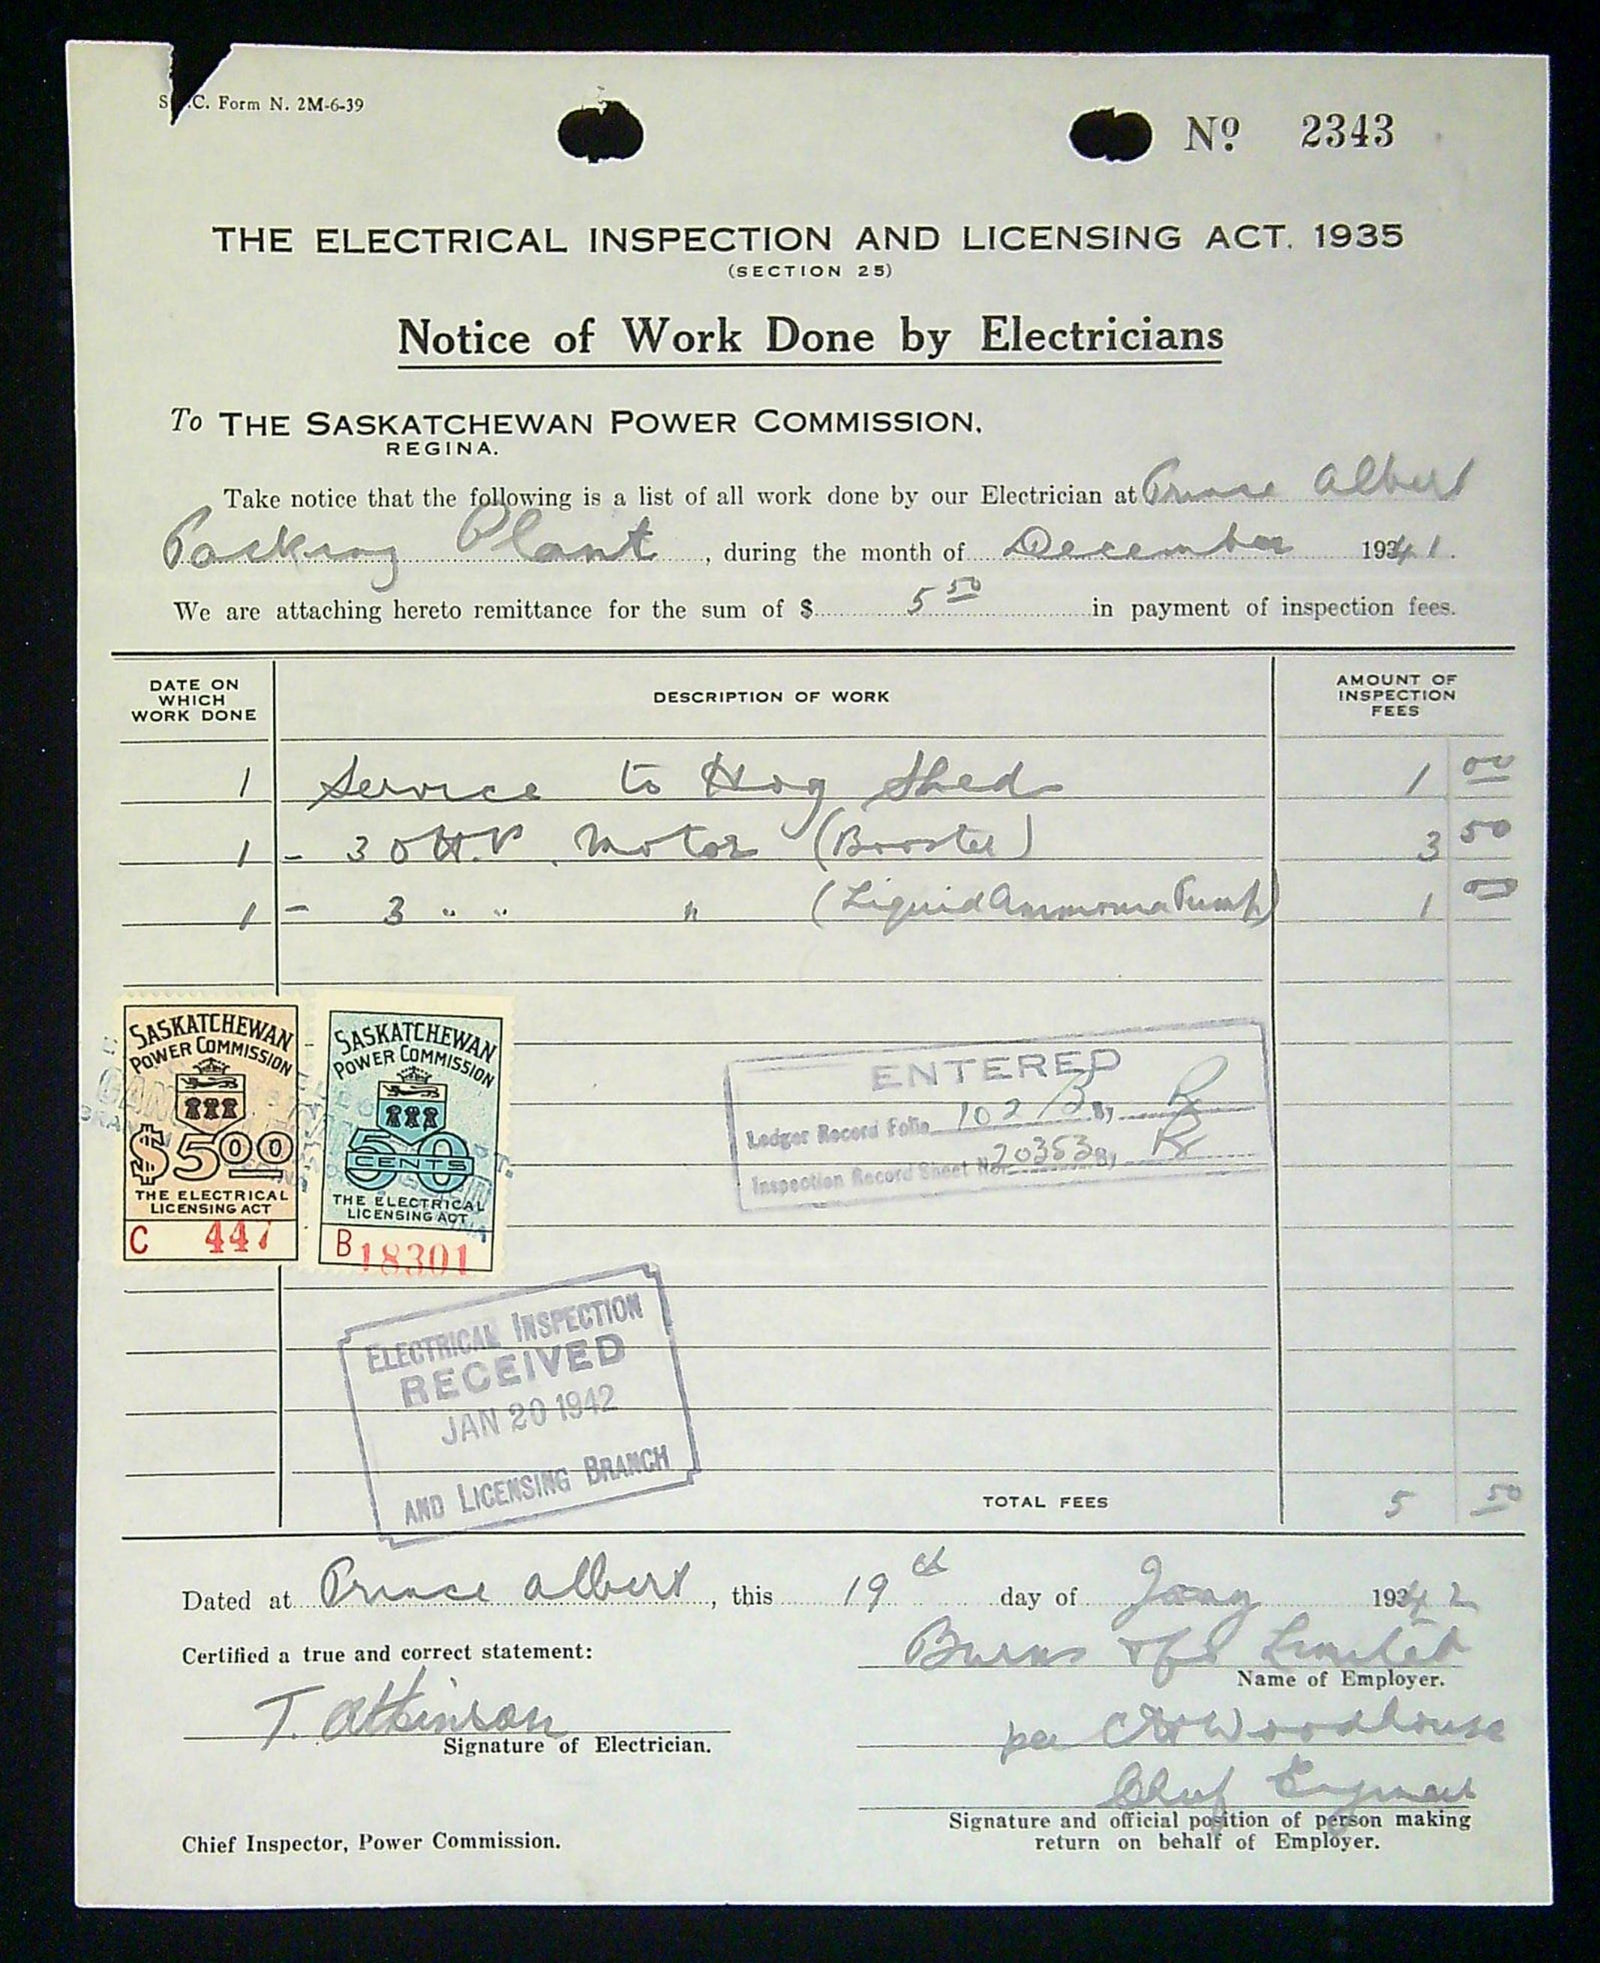 C. Form N. 2M-6-39
Nº 2343
THE ELECTRICAL INSPECTION AND LICENSING ACT. 1935
(SECTION 25)
Notice of Work Done by Electricians
To THE SASKATCHEWAN POWER COMMISSION,
REGINA.
Take notice that the following is a list of all work done by our Electrician at Prince Albert
Packing Plant, during the month of December 1941.
We are attaching hereto remittance for the sum of $ 5 50 in payment of inspection fees.
DATE ON WHICH WORK DONE
DESCRIPTION OF WORK
AMOUNT OF INSPECTION FEES
1 Service to Hog Shed 1 00
1 - 30 H.P. Motor (Booster) 3 50
1 - 3 " " " (Liquid Ammonia Pump) 1 00
SASKATCHEWAN
POWER COMMISSION
$5 00
THE ELECTRICAL
LICENSING ACT
C 447
SASKATCHEWAN
POWER COMMISSION
50
CENTS
THE ELECTRICAL
LICENSING ACT
B 18301
ENTERED
Ledger Record Folio 102 B By
Inspection Record Sheet No. 20353 By
ELECTRICAL INSPECTION
RECEIVED
JAN 20 1942
AND LICENSING BRANCH
TOTAL FEES 5 50
Dated at Prince Albert, this 19th day of Jany 1942
Certified a true and correct statement:
Burns & Co Limited
Name of Employer.
T. Atkinson
Signature of Electrician.
per Woodhouse
Chief Engineer
Signature and official position of person making
return on behalf of Employer.
Chief Inspector, Power Commission.